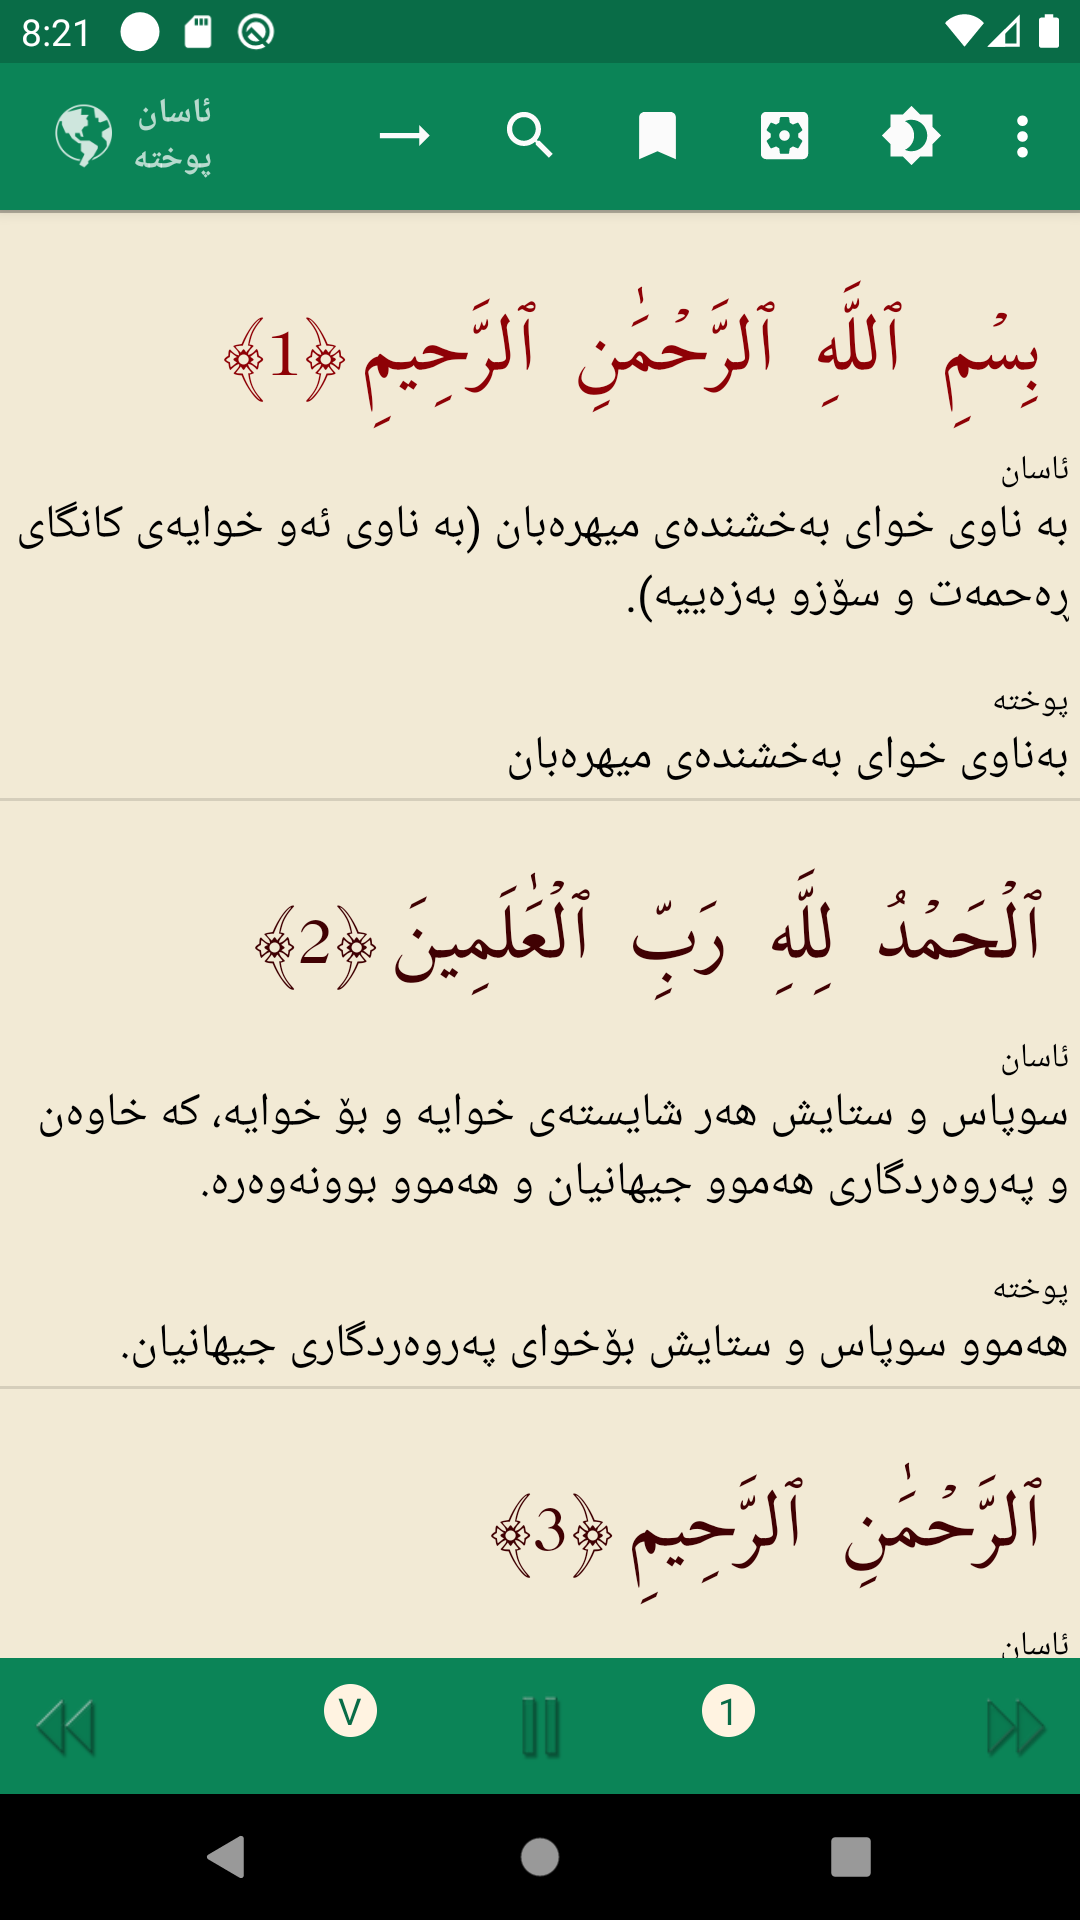 8:21
ئاسان
پوختە
بِسۡمِ ٱللَّهِ ٱلرَّحۡمَٰنِ ٱلرَّحِيمِ ﴿1﴾
ئاسان
بە ناوی خوای بەخشندەی میهرەبان (بە ناوی ئەو خوایەی کانگای
ڕەحمەت و سۆزو بەزەییە).
پوختە
بەناوی خوای بەخشندەی میهرەبان
ٱلۡحَمۡدُ لِلَّهِ رَبِّ ٱلۡعَٰلَمِينَ ﴿2﴾
ئاسان
سوپاس و ستایش هەر شایستەی خوایە و بۆ خوایە، کە خاوەن
و پەروەردگاری هەموو جیهانیان و هەموو بوونەوەرە.
پوختە
هەموو سوپاس و ستایش بۆخوای پەروەردگاری جیهانیان.
ٱلرَّحۡمَٰنِ ٱلرَّحِيمِ ﴿3﴾
ئاسان
V
1